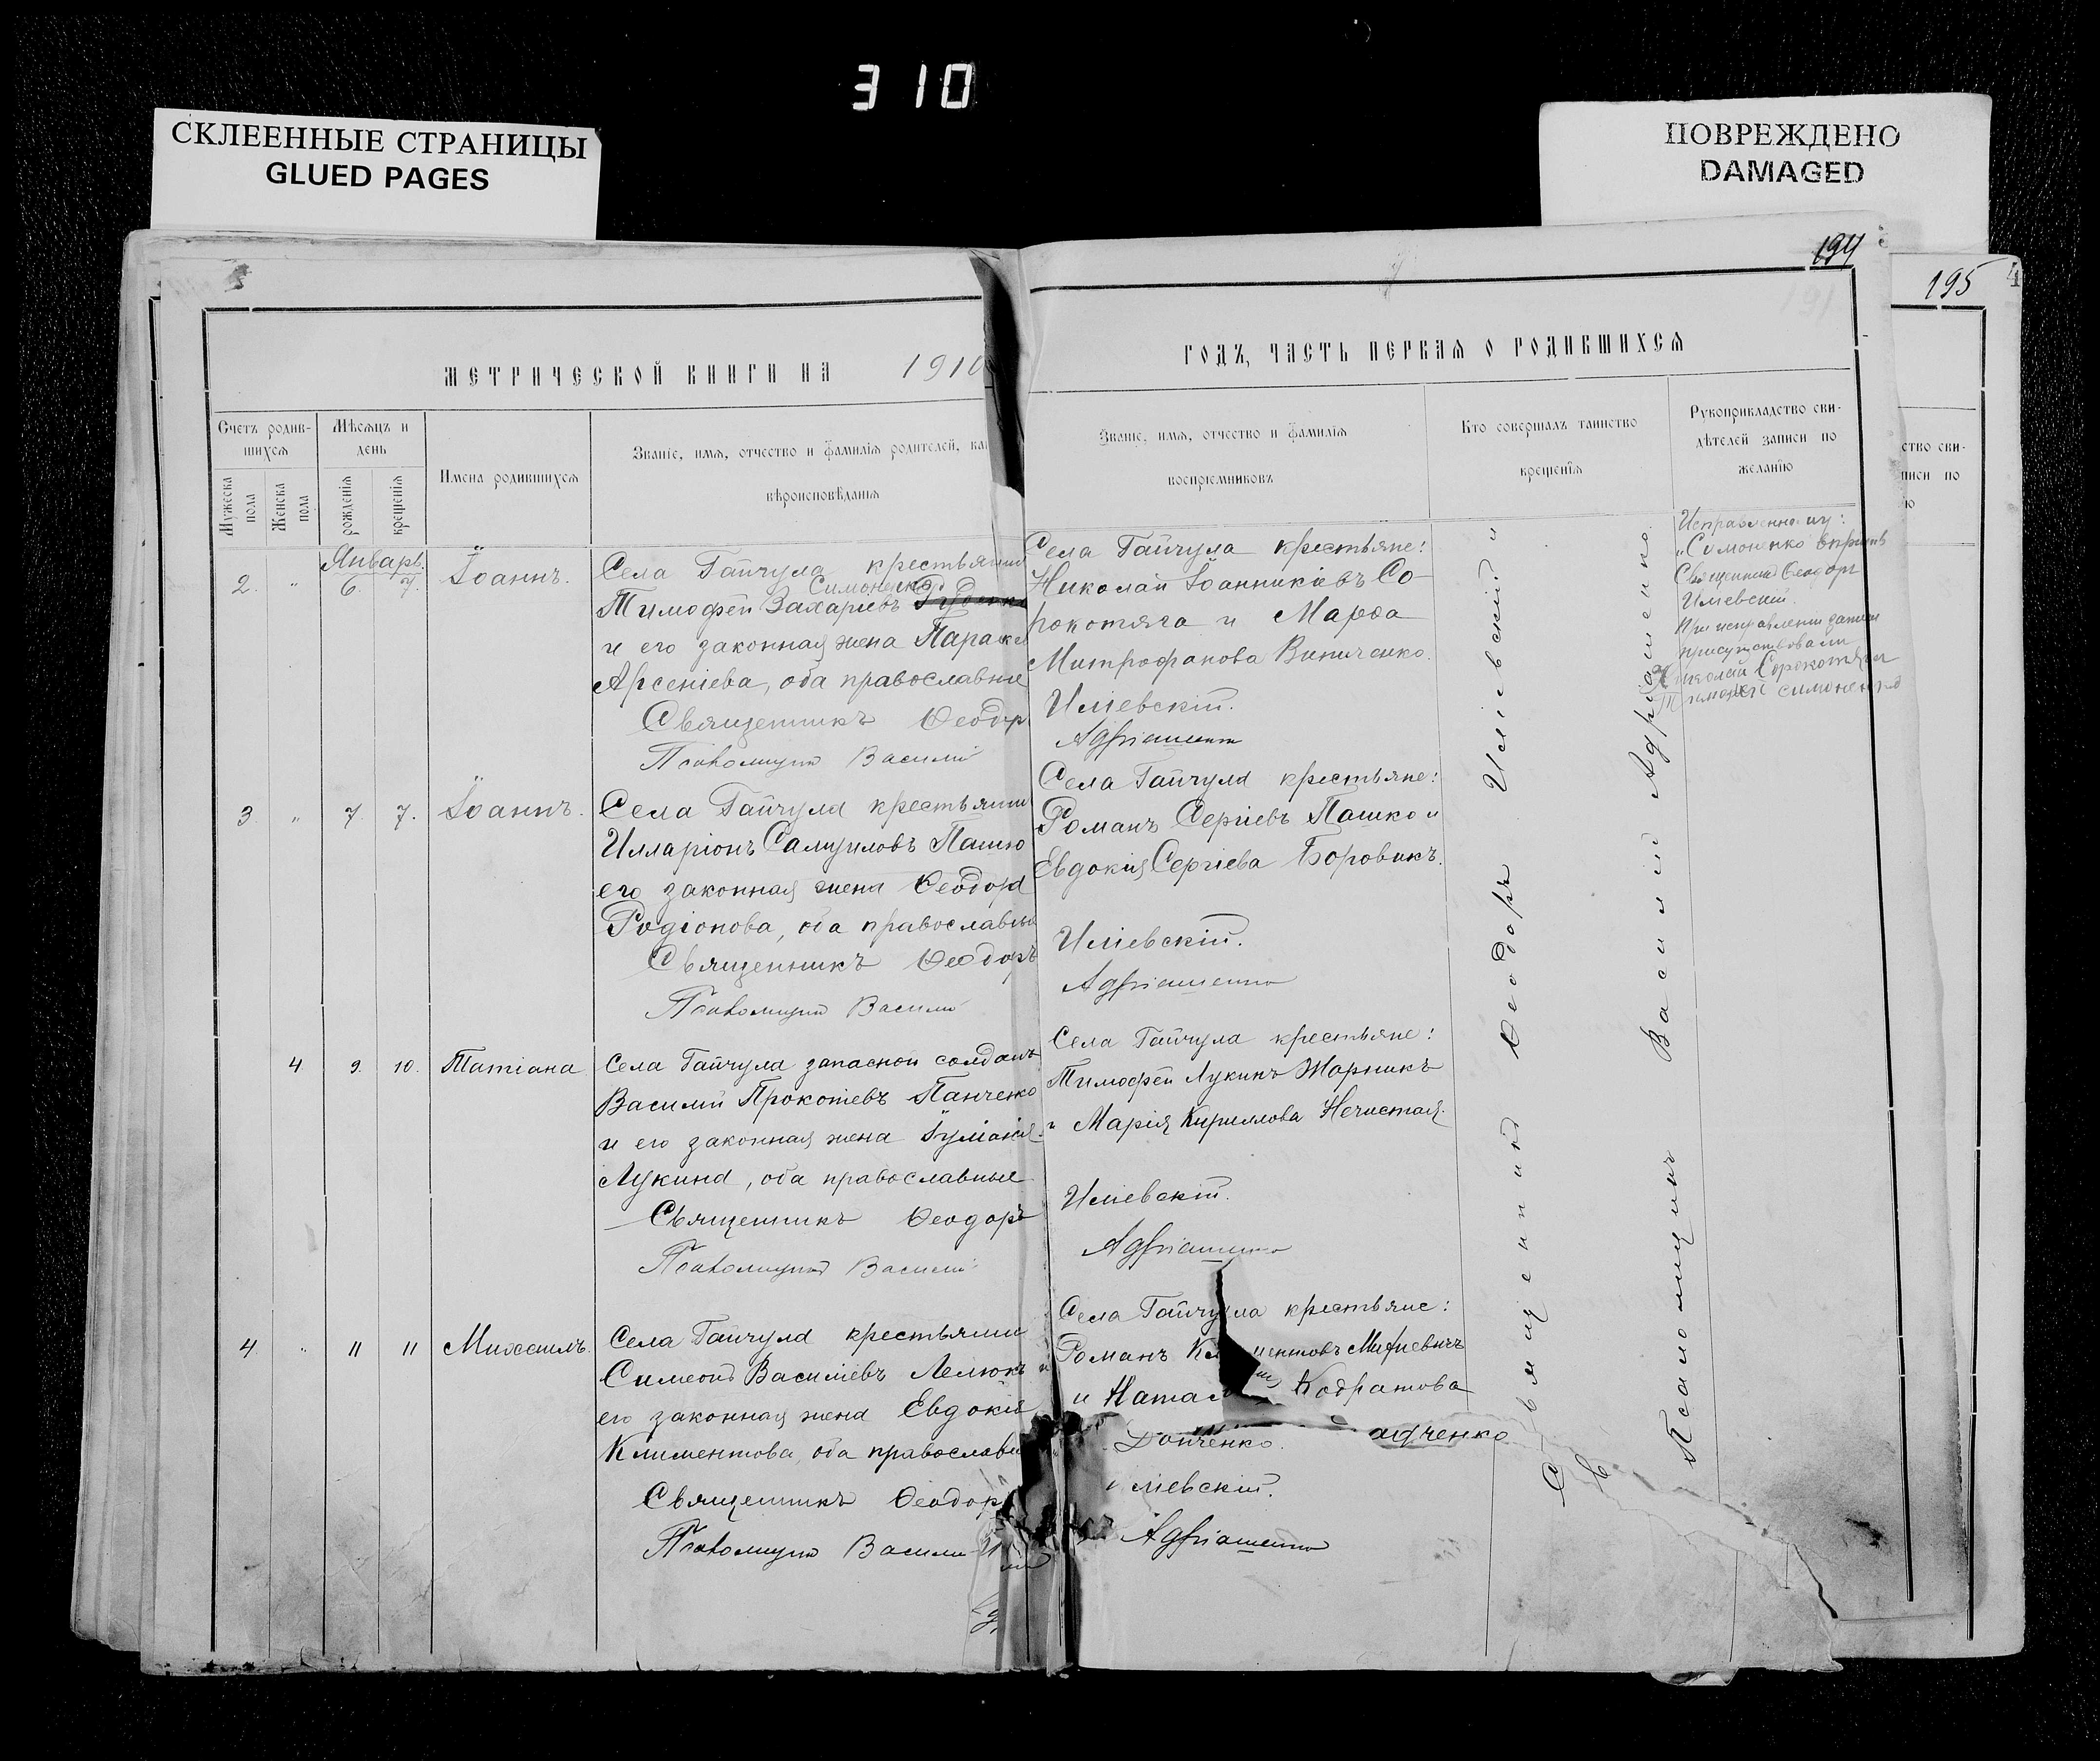 310
СКЛЕЕННЫЕ СТРАНИЦЫ
GLUED PAGES
ПОВРЕЖДЕНО
DAMAGED
194
195
4
191
МЕТРИЧЕСКОЙ КНИГИ НА 1910
ГОДЪ, ЧАСТЬ ПЕРВАЯ О РОДИВШИХСЯ
Счетъ родив-
шихся
Мужеска пола
Женска пола
Мѣсяцъ и
день
рожденія
крещенія
Имена родившихся
Званіе, имя, отчество и фамилія родителей, ка
вѣроисповѣданія
Званіе, имя, отчество и фамилія
воспріемниковъ
Кто совершалъ таинство
крещенія
Рукоприкладство сви-
дѣтелей записи по
желанію
ство сви-
писи по
ю
Январь.
2. " 6. 7. Іоаннъ.
Села Гайчула крестьянин
Симоненко
Тимофей Захаріевъ
и его законная жена Параске
Арсеніева, оба православные
Священникъ Ѳеодор
Псаломщикъ Василій
Села Гайчула крестьяне:
Николай Іоанникіевъ Со-
рокотяга и Марѳа
Митрофанова Виниченко.
Иліевскій.
Адріашенко
Исправленному:
"Симоненко" вѣрить
Священникъ Ѳеодоръ
Иліевскій.
При исправленіи записи
присутствовали
Николай Сорокотяга
Тимофей Симоненко
3. " 7. 7. Іоаннъ.
Села Гайчула крестьянин
Илларіонъ Самуиловъ Пашко
его законная жена Ѳеодора
Родіонова, оба православные
Священникъ Ѳеодоръ
Псаломщикъ Василій
Села Гайчула крестьяне:
Романъ Сергіевъ Пашко и
Евдокія Сергіева Боровикъ.
Иліевскій.
Адріашенко
4 9. 10. Татіана
Села Гайчула запасной солдатъ
Василій Прокопіевъ Панченко
и его законная жена Іуліанія
Лукина, оба православные
Священникъ Ѳеодоръ
Псаломщикъ Василій
Села Гайчула крестьяне:
Тимофей Лукинъ Жорникъ
и Марія Кириллова Нечистая.
Иліевскій.
Адріашенко
4. " 11 11 Михаилъ.
Села Гайчула крестьянин
Симеонъ Василіевъ Лелюкъ и
его законная жена Евдокія
Климентова, оба православн
Священникъ Ѳеодор
Псаломщикъ Василій
Села Гайчула крестьяне:
Романъ Климентовъ
и Натал Кодратова
Донченко. адченко
ліевскій.
Адріашенко
Священникъ Ѳеодоръ Иліевскій и
Псаломщикъ Василій Адріашенко.